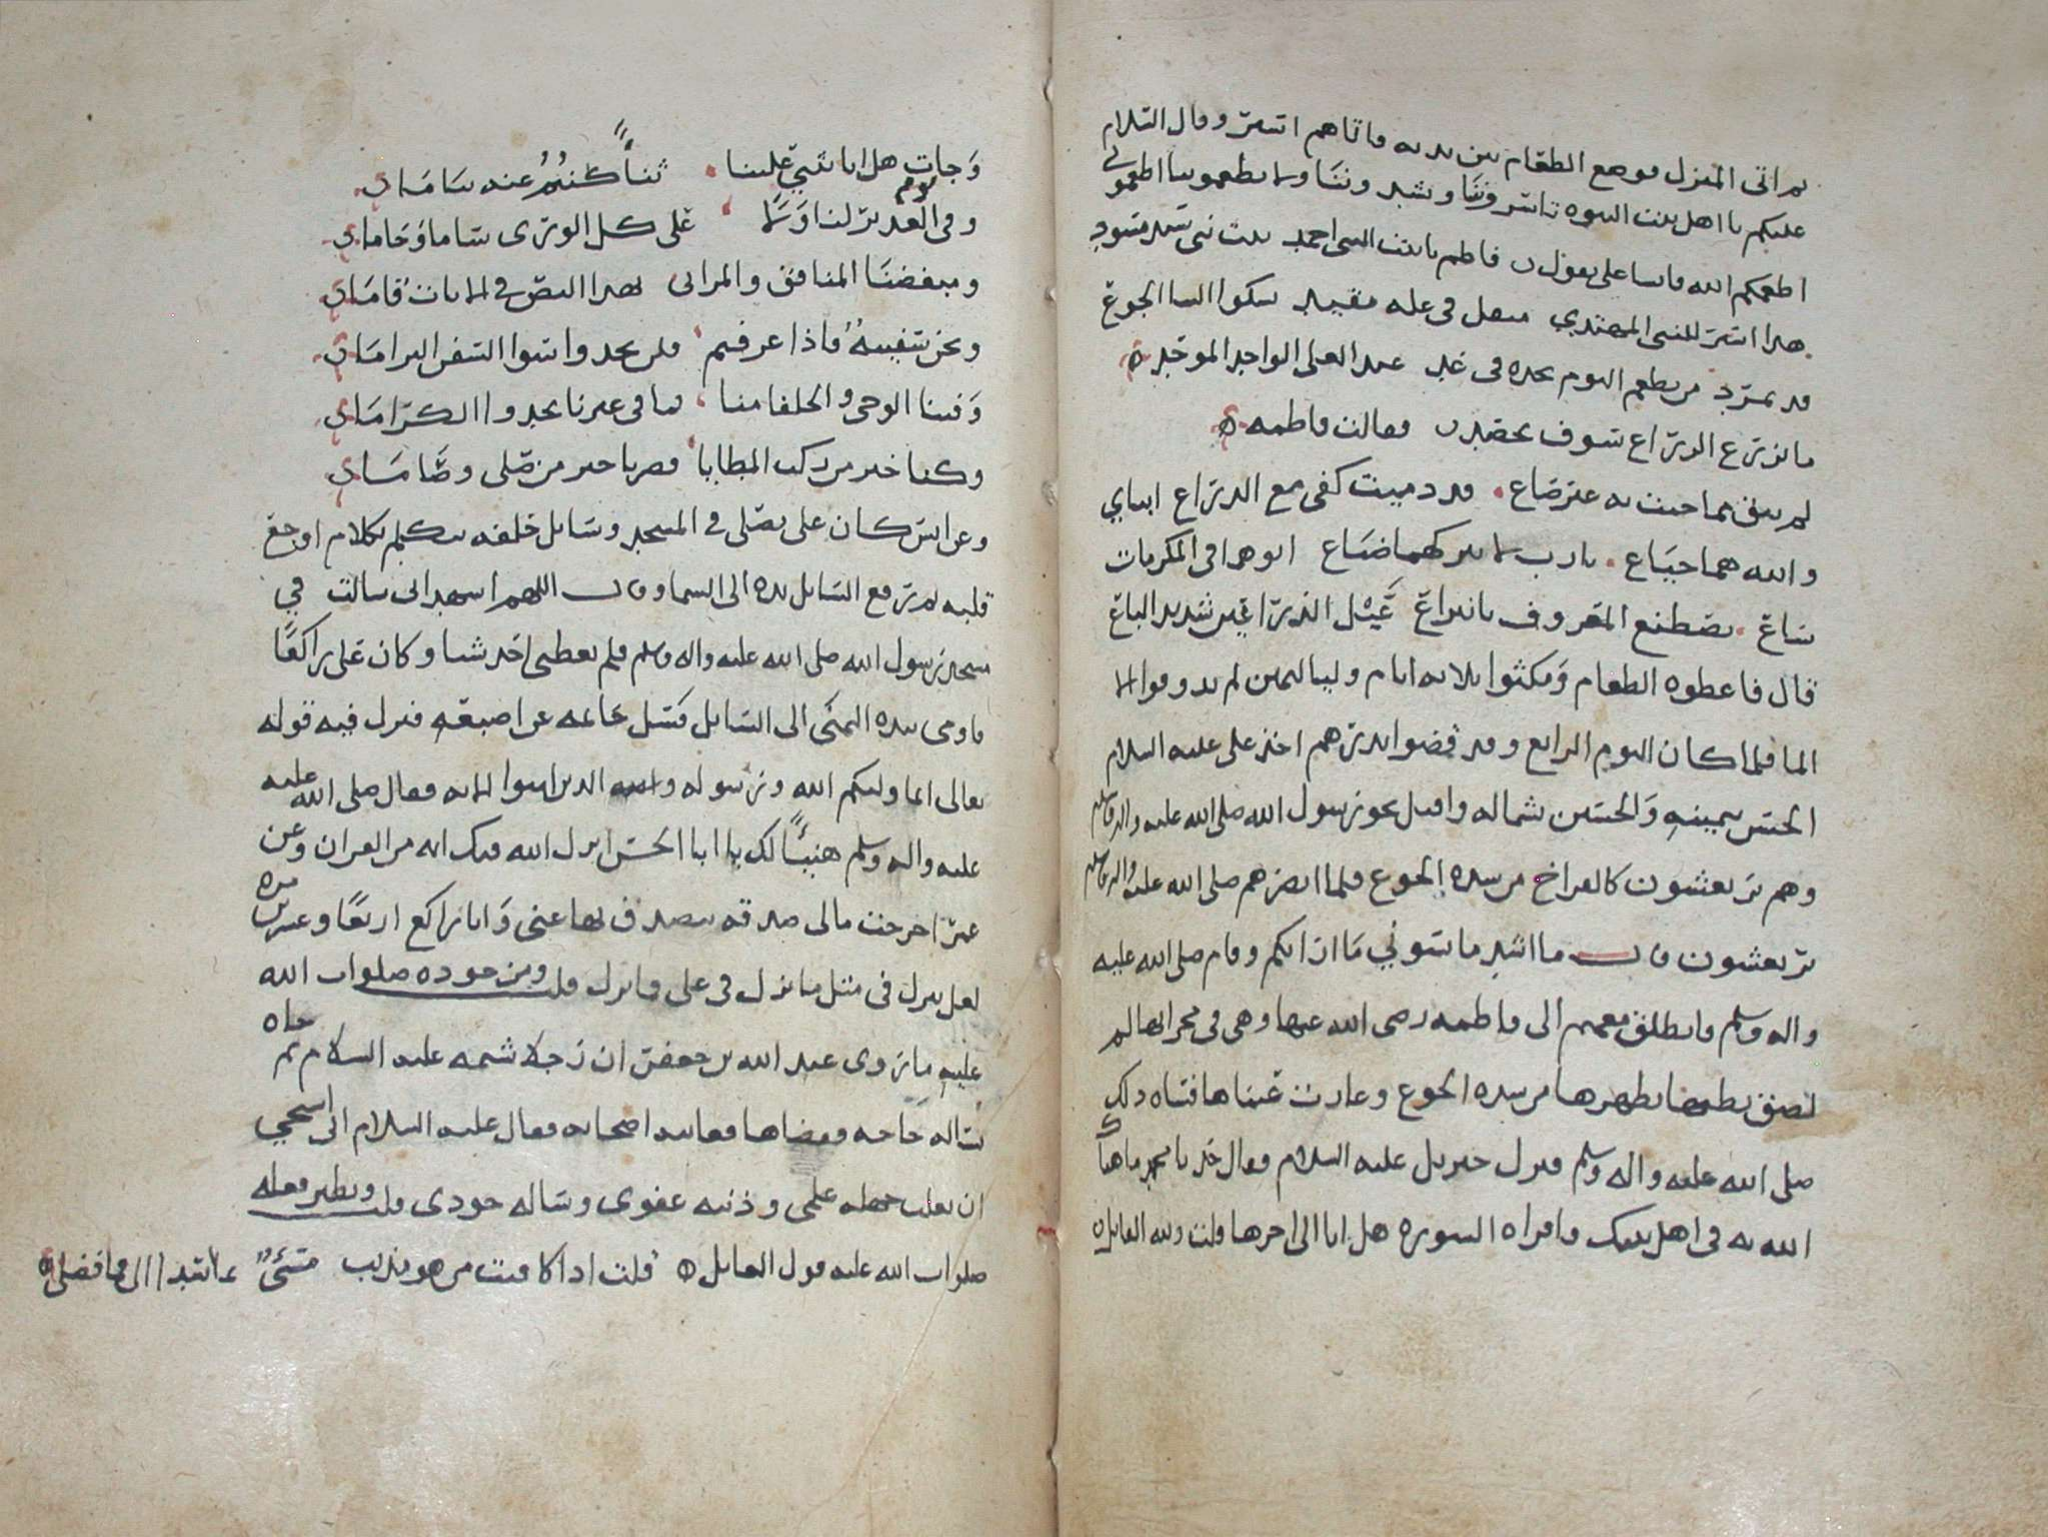 ثم اتى المنزل فوضع الطعام بين يديه فاتاهم اسير وقال السلام
عليكم يا اهل بيت النبوه تاسرونا وتشدونا ولا تطعمونا اطعموني
اطعمكم الله فانشا علي يقول فاطم يا بنت النبي احمد بنت نبي سيد مسود
هذا اسير للنبي المهتدي مثقل في غله مقيد يشكو الينا الجوع
قد تمرد من يطعم اليوم يجده في غد عند العلي الواحد الموحد
ما يزرع الزراع سوف يحصد فقالت فاطمه
لم يبق مما جيت به غير صاع قد دميت كفي مع الذراع ابناي
والله هما جياع يا رب لا تتركهما ضياع ابوهما في المكرمات
ساع يصطنع المعروف بابتداع عبل الذراعين شديد الباع
قال فاعطوه الطعام ومكثوا ثلاثه ايام ولياليهن لم يذوقوا الا
الما فلما كان اليوم الرابع وقد قضوا نذرهم اخذ علي عليه السلام
الحسن بيمينه والحسين بشماله واقبل نحو رسول الله صلى الله عليه واله وسلم
وهم يرتعشون كالفراخ من شده الجوع فلما ابصرهم صلى الله عليه واله وسلم
يرتعشون قال ما اشد ما يسوني ما اراكم وقام صلى الله عليه
واله وسلم فانطلق معهم الى فاطمه رضي الله عنها وهي في محرابها لم
لصق بطنها بظهرها من شده الجوع وغارت عيناها فساه ذلك
صلى الله عليه واله وسلم فنزل جبريل عليه السلام فقال خذ يا محمد ما هنأك
الله به في اهل بيتك واقراه السوره هل اتا الى اخرها قلت ولله القايل
وجات هل اتا تثني علينا ثناً كنتم عند ساما
وفي يوم الغدير لنا ولا على كل الورى ساما وحاما
ومبغضنا المنافق والمراى لهذا النص في الايات قاما
ونحن سفينه فاذا عرفتم فلن تجدوا سوا السفن المراما
وفينا الوحي والخلفا منا فما في غيرنا تجدوا الكراما
وكنا خير من ركب المطايا وصرنا خير من صلى وصاما
وعن انس كان علي يصلي في المسجد وسايل خلفه يتكلم بكلام اوجع
قلبه ثم رفع السايل يده الى السما وقال اللهم اشهد اني سالت في
مسجد رسول الله صلى الله عليه واله وسلم فلم يعطني احد شيا وكان علي راكعًا
فاومى بيده اليمنى الى السايل فسل خاتمه عن اصبعه فنزل فيه قوله
تعالى انما وليكم الله ورسوله والذين امنوا الايه فقال صلى الله عليه
عليه واله وسلم هنيئًا لك يا ابا الحسن انزل الله فيك ايه من القران وعن
عمر اخرجت مالي صدقه يتصدق بها عني وانا راكع اربعًا وعشرين مره
لعل ينزل في مثل ما نزل في علي فما نزل قلت ومن جوده صلوات الله
عليه ما روى عبد الله بن جعفر ان رجلا شتمه عليه السلام ثم جاه
يساله حاجه فقضاها فعاتبه اصحابه فقال عليه السلام اني استحي
ان يغلب جهله علمي وذنبه عفوي وسواله جودي قلت ونظير فعله
صلوات الله عليه قول القايل قلت اذا كافيت من هو مذنب